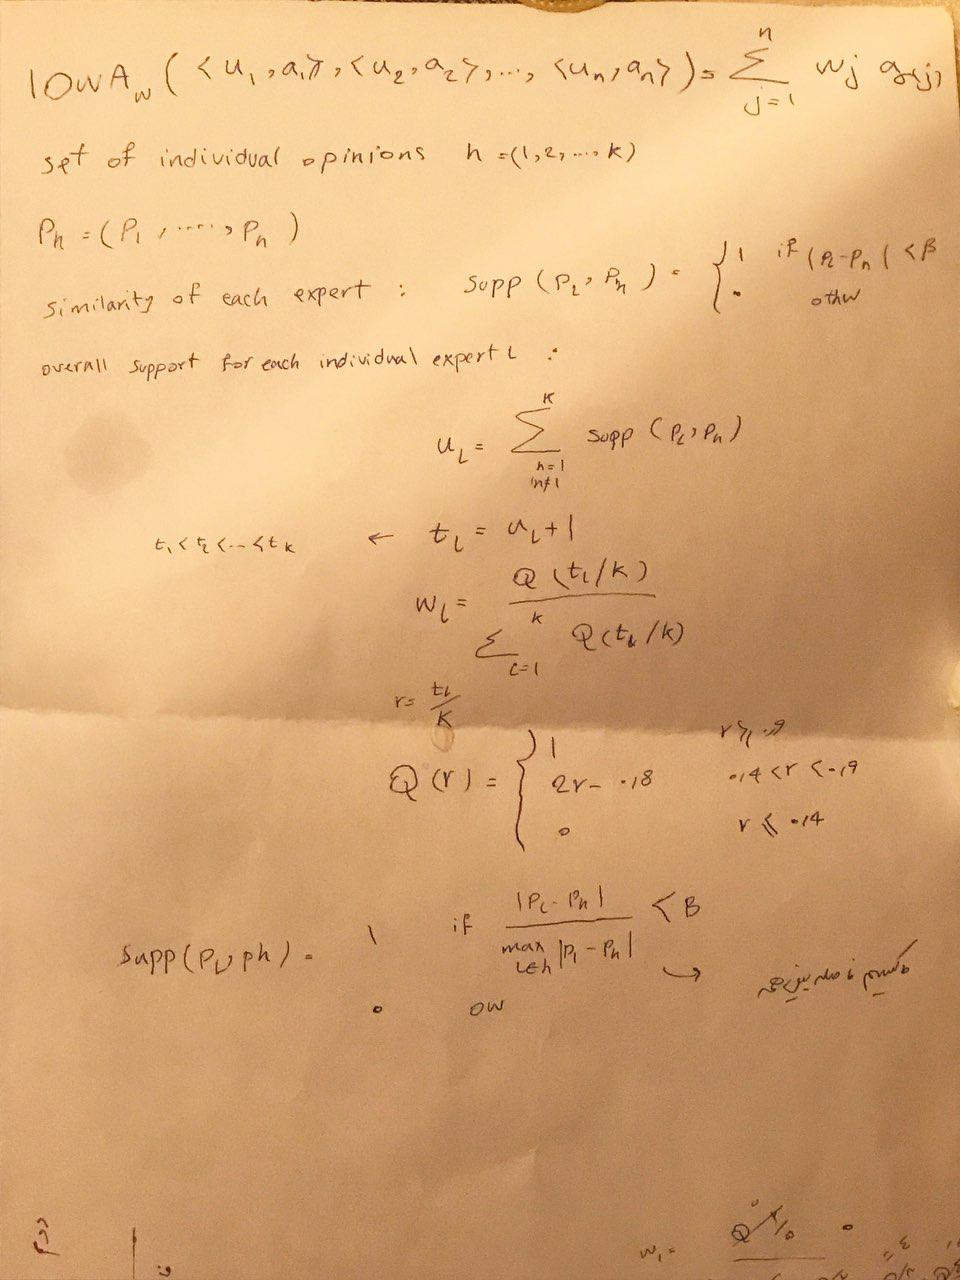 IOWA_w ( < u_1 , a_1 > , < u_2 , a_2 > , ... , < u_n , a_n > ) = Σ_{j=1}^{n} w_j a_{σ(j)}
set of individual opinions h = (1, 2, ..., k)
P_h = ( P_1 , ..... , P_n )
similarity of each expert : supp ( P_L , P_h ) = { 1 if | P_L - P_h | < β
0 othw
overall support for each individual expert L :
u_L = Σ_{h=1, h≠1}^{K} supp ( P_L , P_h )
t_1 < t_2 < ... < t_k ← t_L = u_L + 1
w_L = Q ( t_L / k ) / Σ_{L=1}^{k} Q ( t_L / k )
r = t_L / K
Q ( r ) = { 1 r ⩾ .9
2r - .18 .14 < r < .19
0 r ⩽ .14
supp ( P_L , ph ) = 1 if | P_L - P_h | / max_{L∈h} | P_1 - P_h | < B →
0 ow
w_1 =